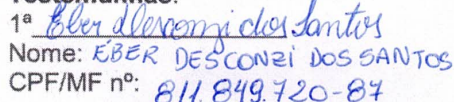 Testemunhas:
1ª Eber Desconzi dos Santos
Nome: EBER DESCONZI DOS SANTOS
CPF/MF nº: 811.849.720-87